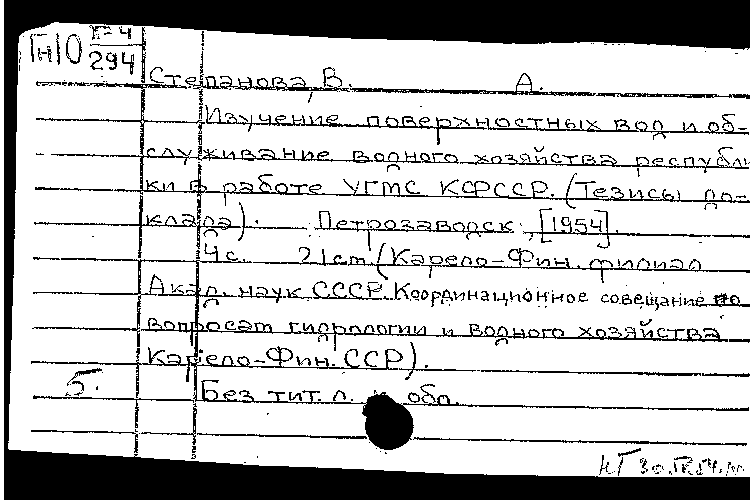 Гн10 Г-4
294
Степанова, В. А.
Изучение поверхностных вод и об-
служивание водного хозяйства республи
ки в работе УГМС КФССР. (Тезисы до-
клада). Петрозаводск, [1954].
4 с. 21 см. (Карело-Фин. филиал
Акад. наук СССР. Координационное совещание по
вопросам гидрологии и водного хозяйства
Карело-Фин. ССР).
Б. Без тит. л. и обл.
НГ 30.